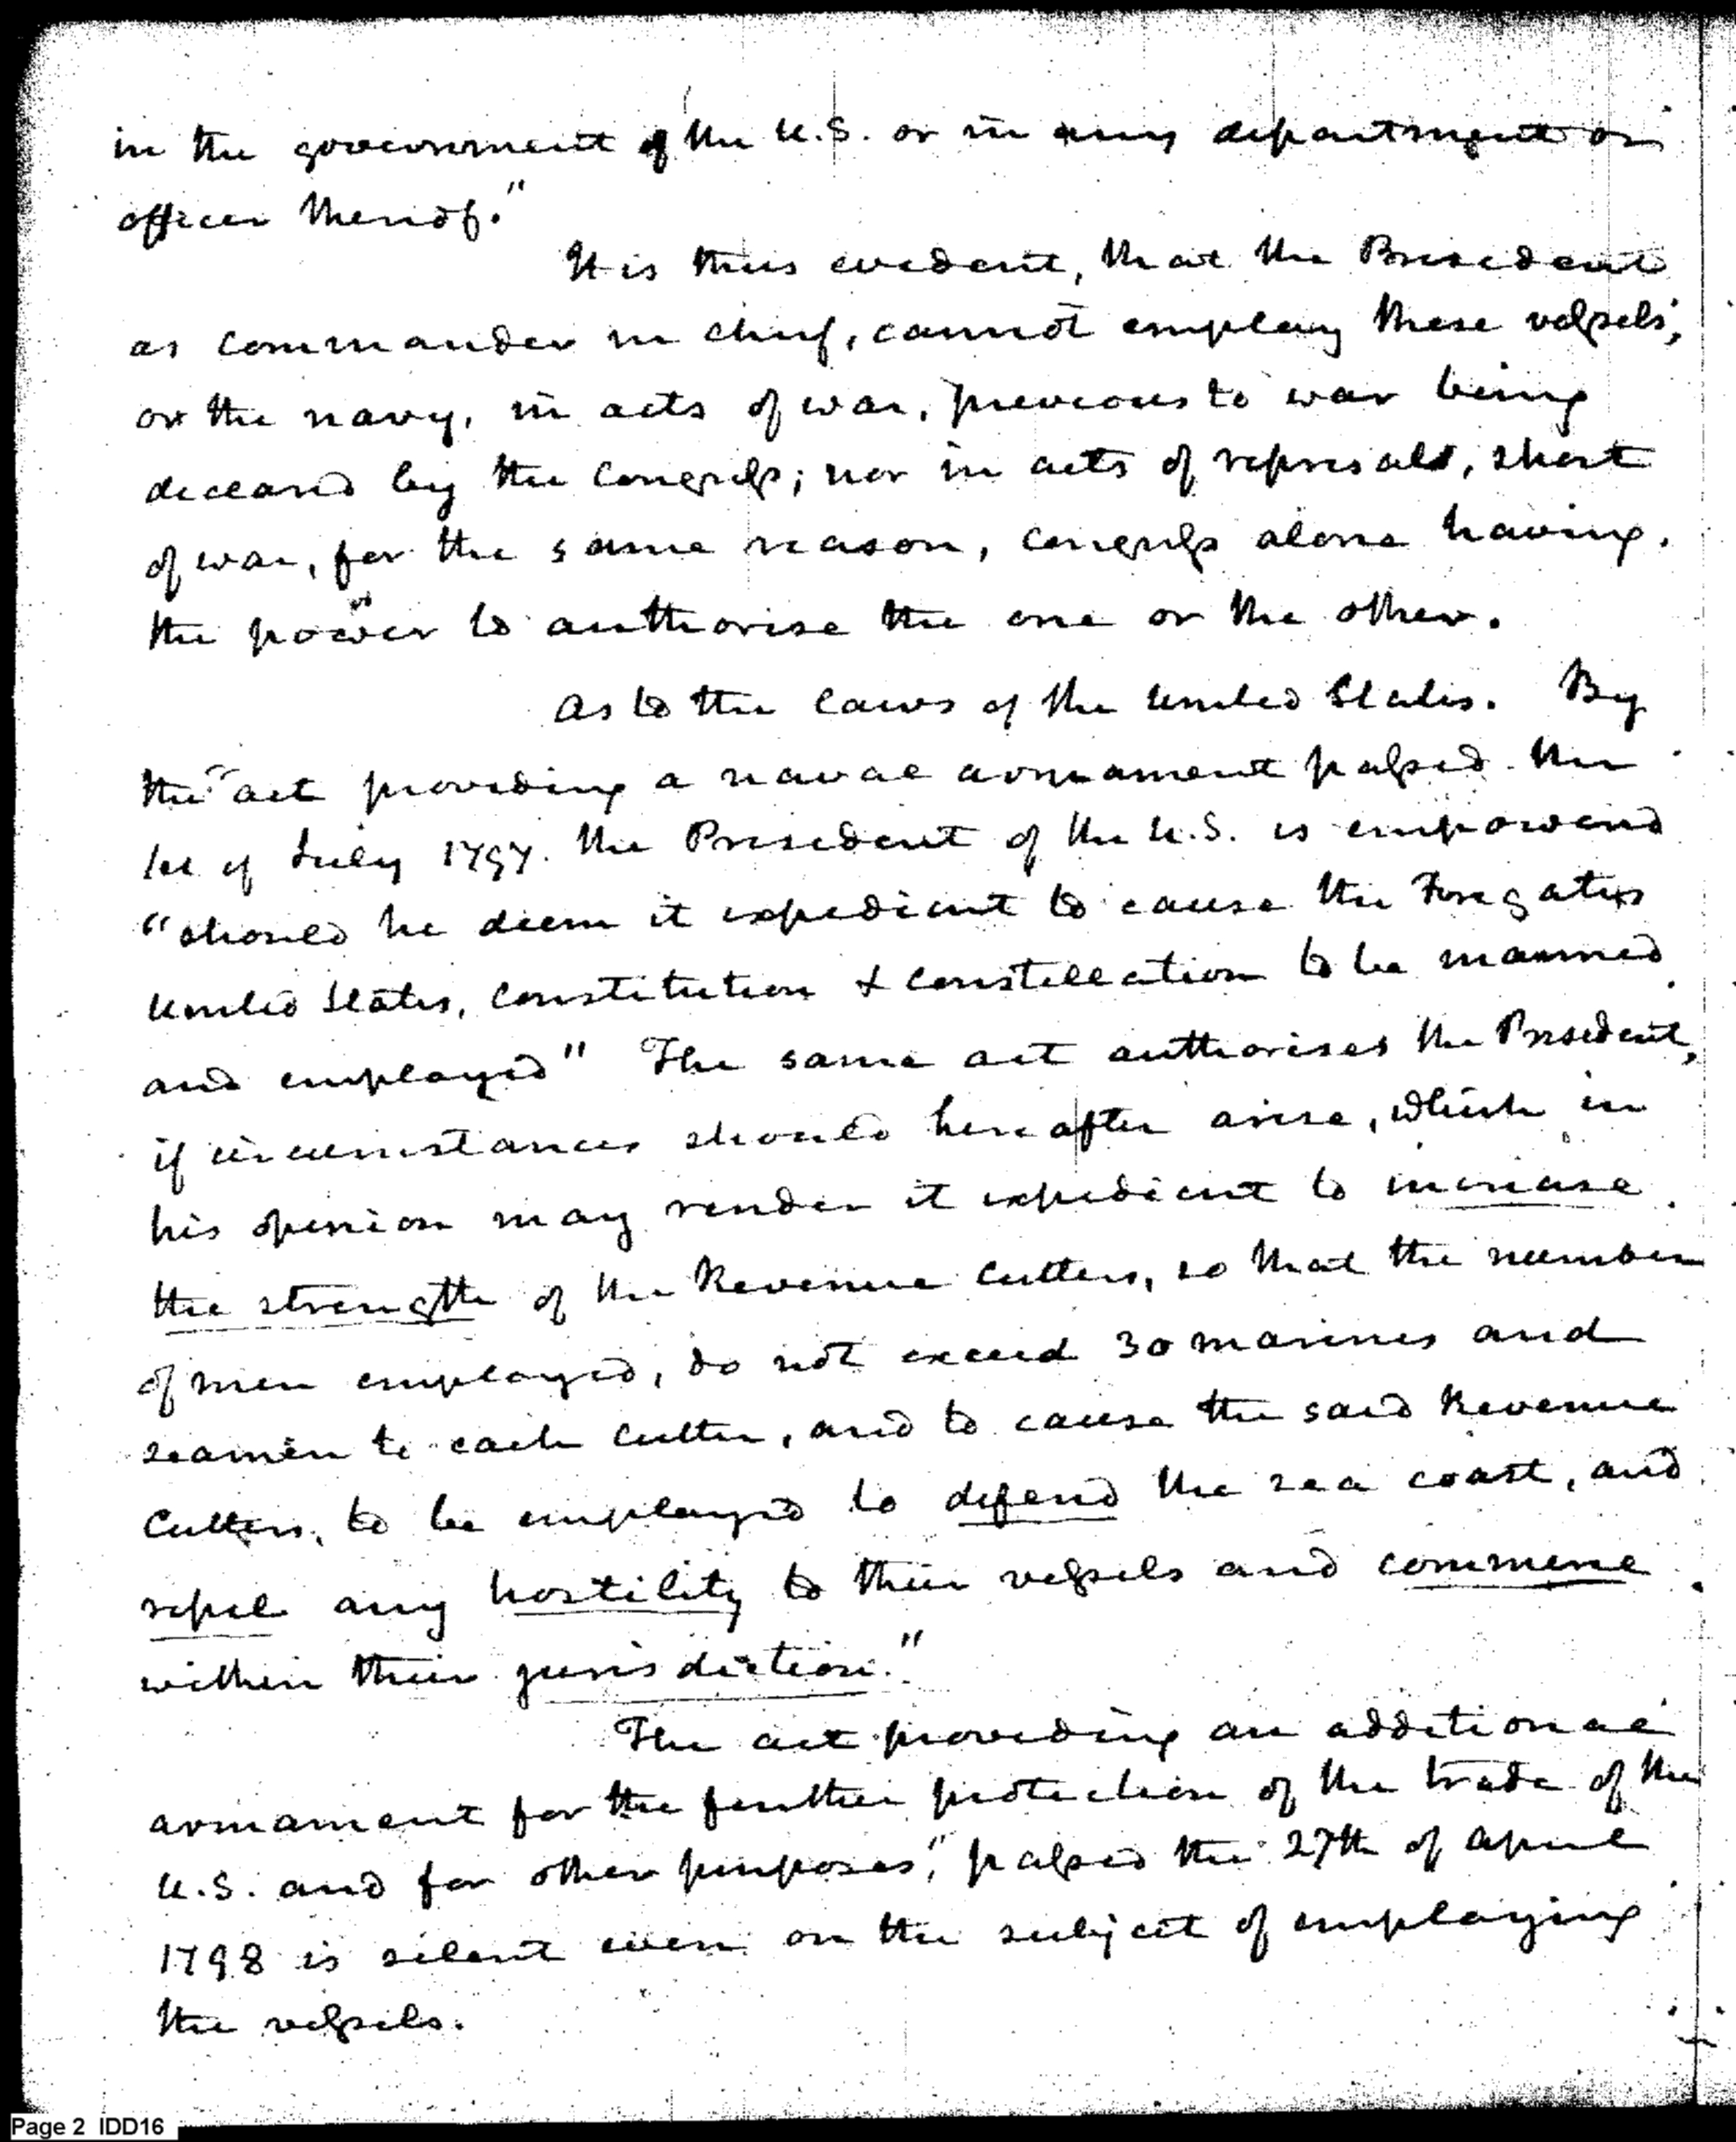 in the government of the U.S. or in any department or
officer thereof."
It is thus evident, that the President
as commander in chief, cannot employ these vessels,
or the navy, in acts of war, previous to war being
declared by the Congress; nor in acts of reprisals, short
of war, for the same reason, congress alone having
the power to authorise the one or the other.
As to the laws of the United States. By
the "act providing a naval armament passed the
1st of July 1797. the President of the U.S. is empowered
"should he deem it expedient to cause the Frigates
United States, Constitution & Constellation to be manned
and employed" The same act authorises the President,
if circumstances should hereafter arise, which in
his opinion may render it expedient to increase
the strength of the Revenue Cutters, so that the number
of men employed, do not exceed 30 marines and
seamen to each cutter, and to cause the said Revenue
Cutters, to be employed to defend the sea coast, and
repel any hostility to their vessels and commerce
within their jurisdiction."
The act providing an additional
armament for the further protection of the trade of the
U.S. and for other purposes," passed the 27th of April
1798 is silent even on the subject of employing
the vessels.
Page 2 IDD16